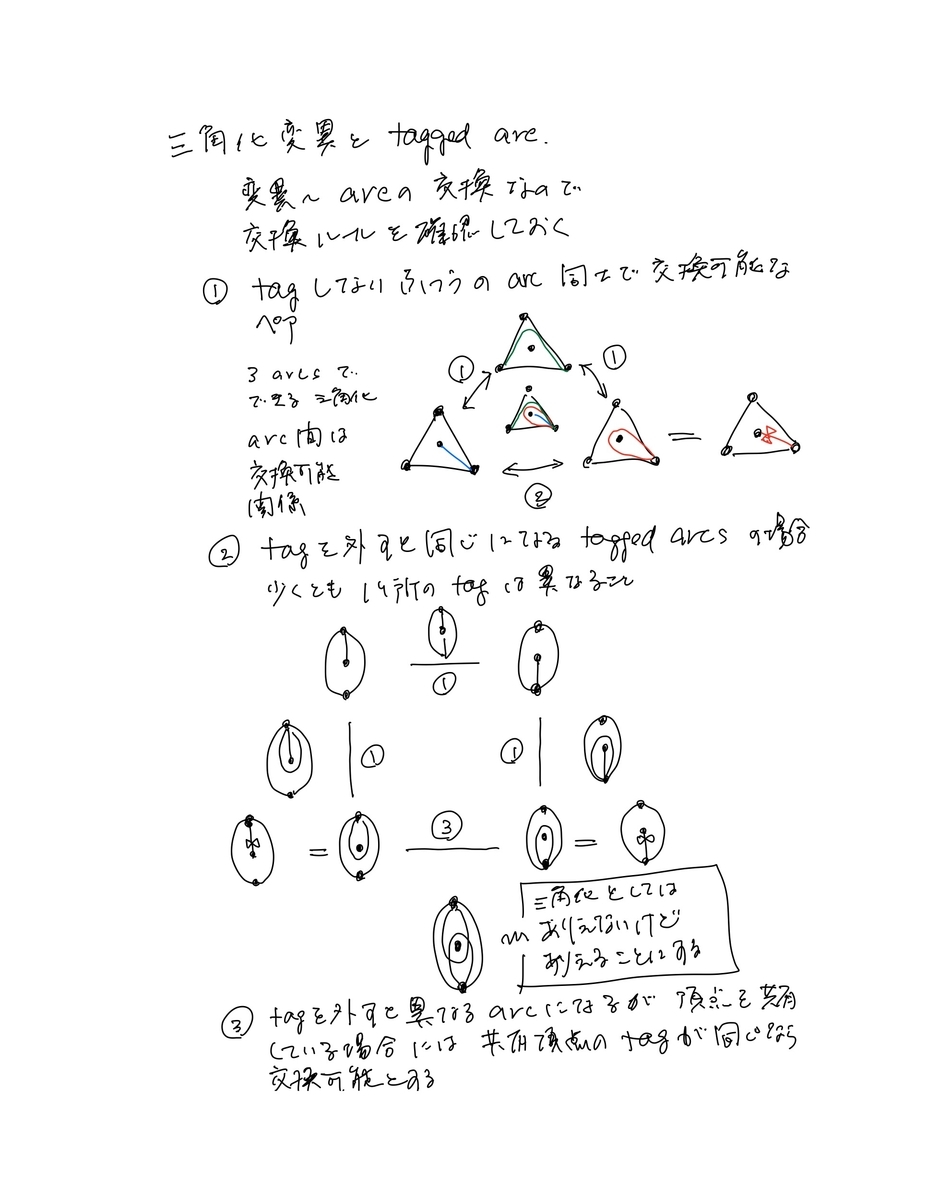 三角化変異と tagged arc.
変異〜 arcの 交換なので
交換ルールを確認しておく
① tagしてない ふつうの arc 同士で 交換可能な
ペア
3 arcs で
できる 三角化
arc間は
交換可能
関係
①
①
②
② tagを外すと同じになる tagged arcs の場合
少くとも 1ヶ所の tagは異なること
①
①
①
③
三角化としては
ありえないけど
ありえることにする
③ tagを外すと異なる arcになるが 頂点を共有
している場合には 共有頂点の tagが同じなら
交換可能とする